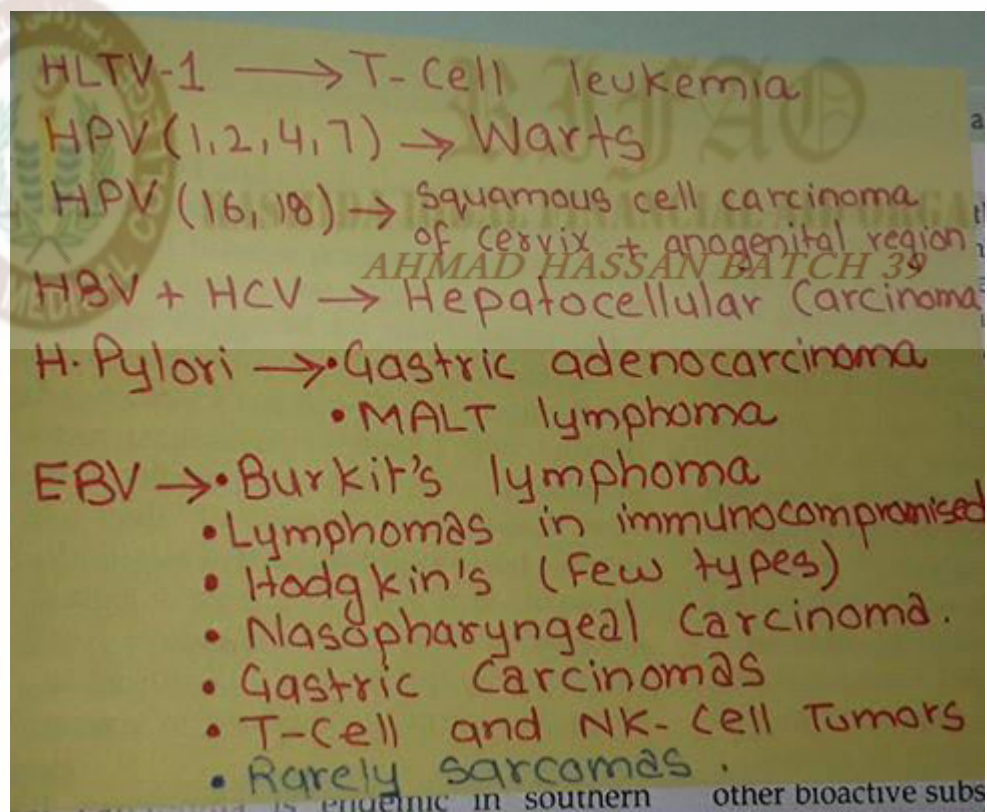 HLTV-1 → T-Cell leukemia
HPV (1,2,4,7) → Warts
HPV (16,18) → Squamous cell carcinoma
of cervix + anogenital region
AHMAD HASSAN BATCH 39
HBV + HCV → Hepatocellular Carcinoma
H. Pylori → • Gastric adenocarcinoma
• MALT lymphoma
EBV → • Burkit's lymphoma
• Lymphomas in immunocompromised
• Hodgkin's (Few types)
• Nasopharyngeal Carcinoma.
• Gastric Carcinomas
• T-Cell and NK-Cell Tumors
• Rarely sarcomas.
is endemic in southern other bioactive subs